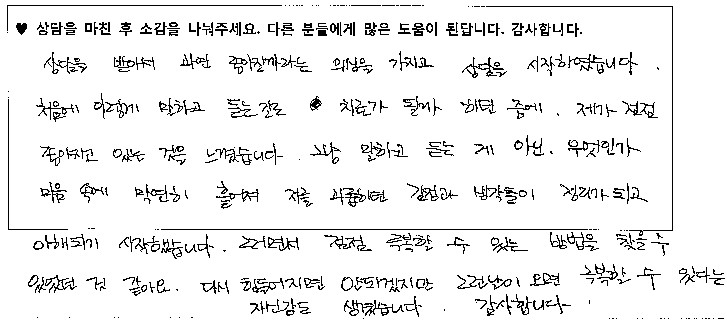 ♥ 상담을 마친 후 소감을 나눠주세요. 다른 분들에게 많은 도움이 된답니다. 감사합니다.
상담을 받아서 과연 좋아질까라는 의심을 가지고 상담을 시작하였습니다.
처음에 이렇게 말하고 듣는걸로 치료가 될까 하던 중에. 제가 점점
좋아지고 있는 것을 느꼈습니다. 그냥 말하고 듣는 게 아닌. 무엇인가
마음 속에 막연히 흩어져 저를 괴롭히던 감정과 생각들이 정리가 되고
이해되기 시작했습니다. 그러면서 점점 극복할 수 있는 방법을 찾을수
있었던 것 같아요. 다시 힘들어지면 안되겠지만 그런날이 오면 극복할 수 있다는
자신감도 생겼습니다. 감사합니다.